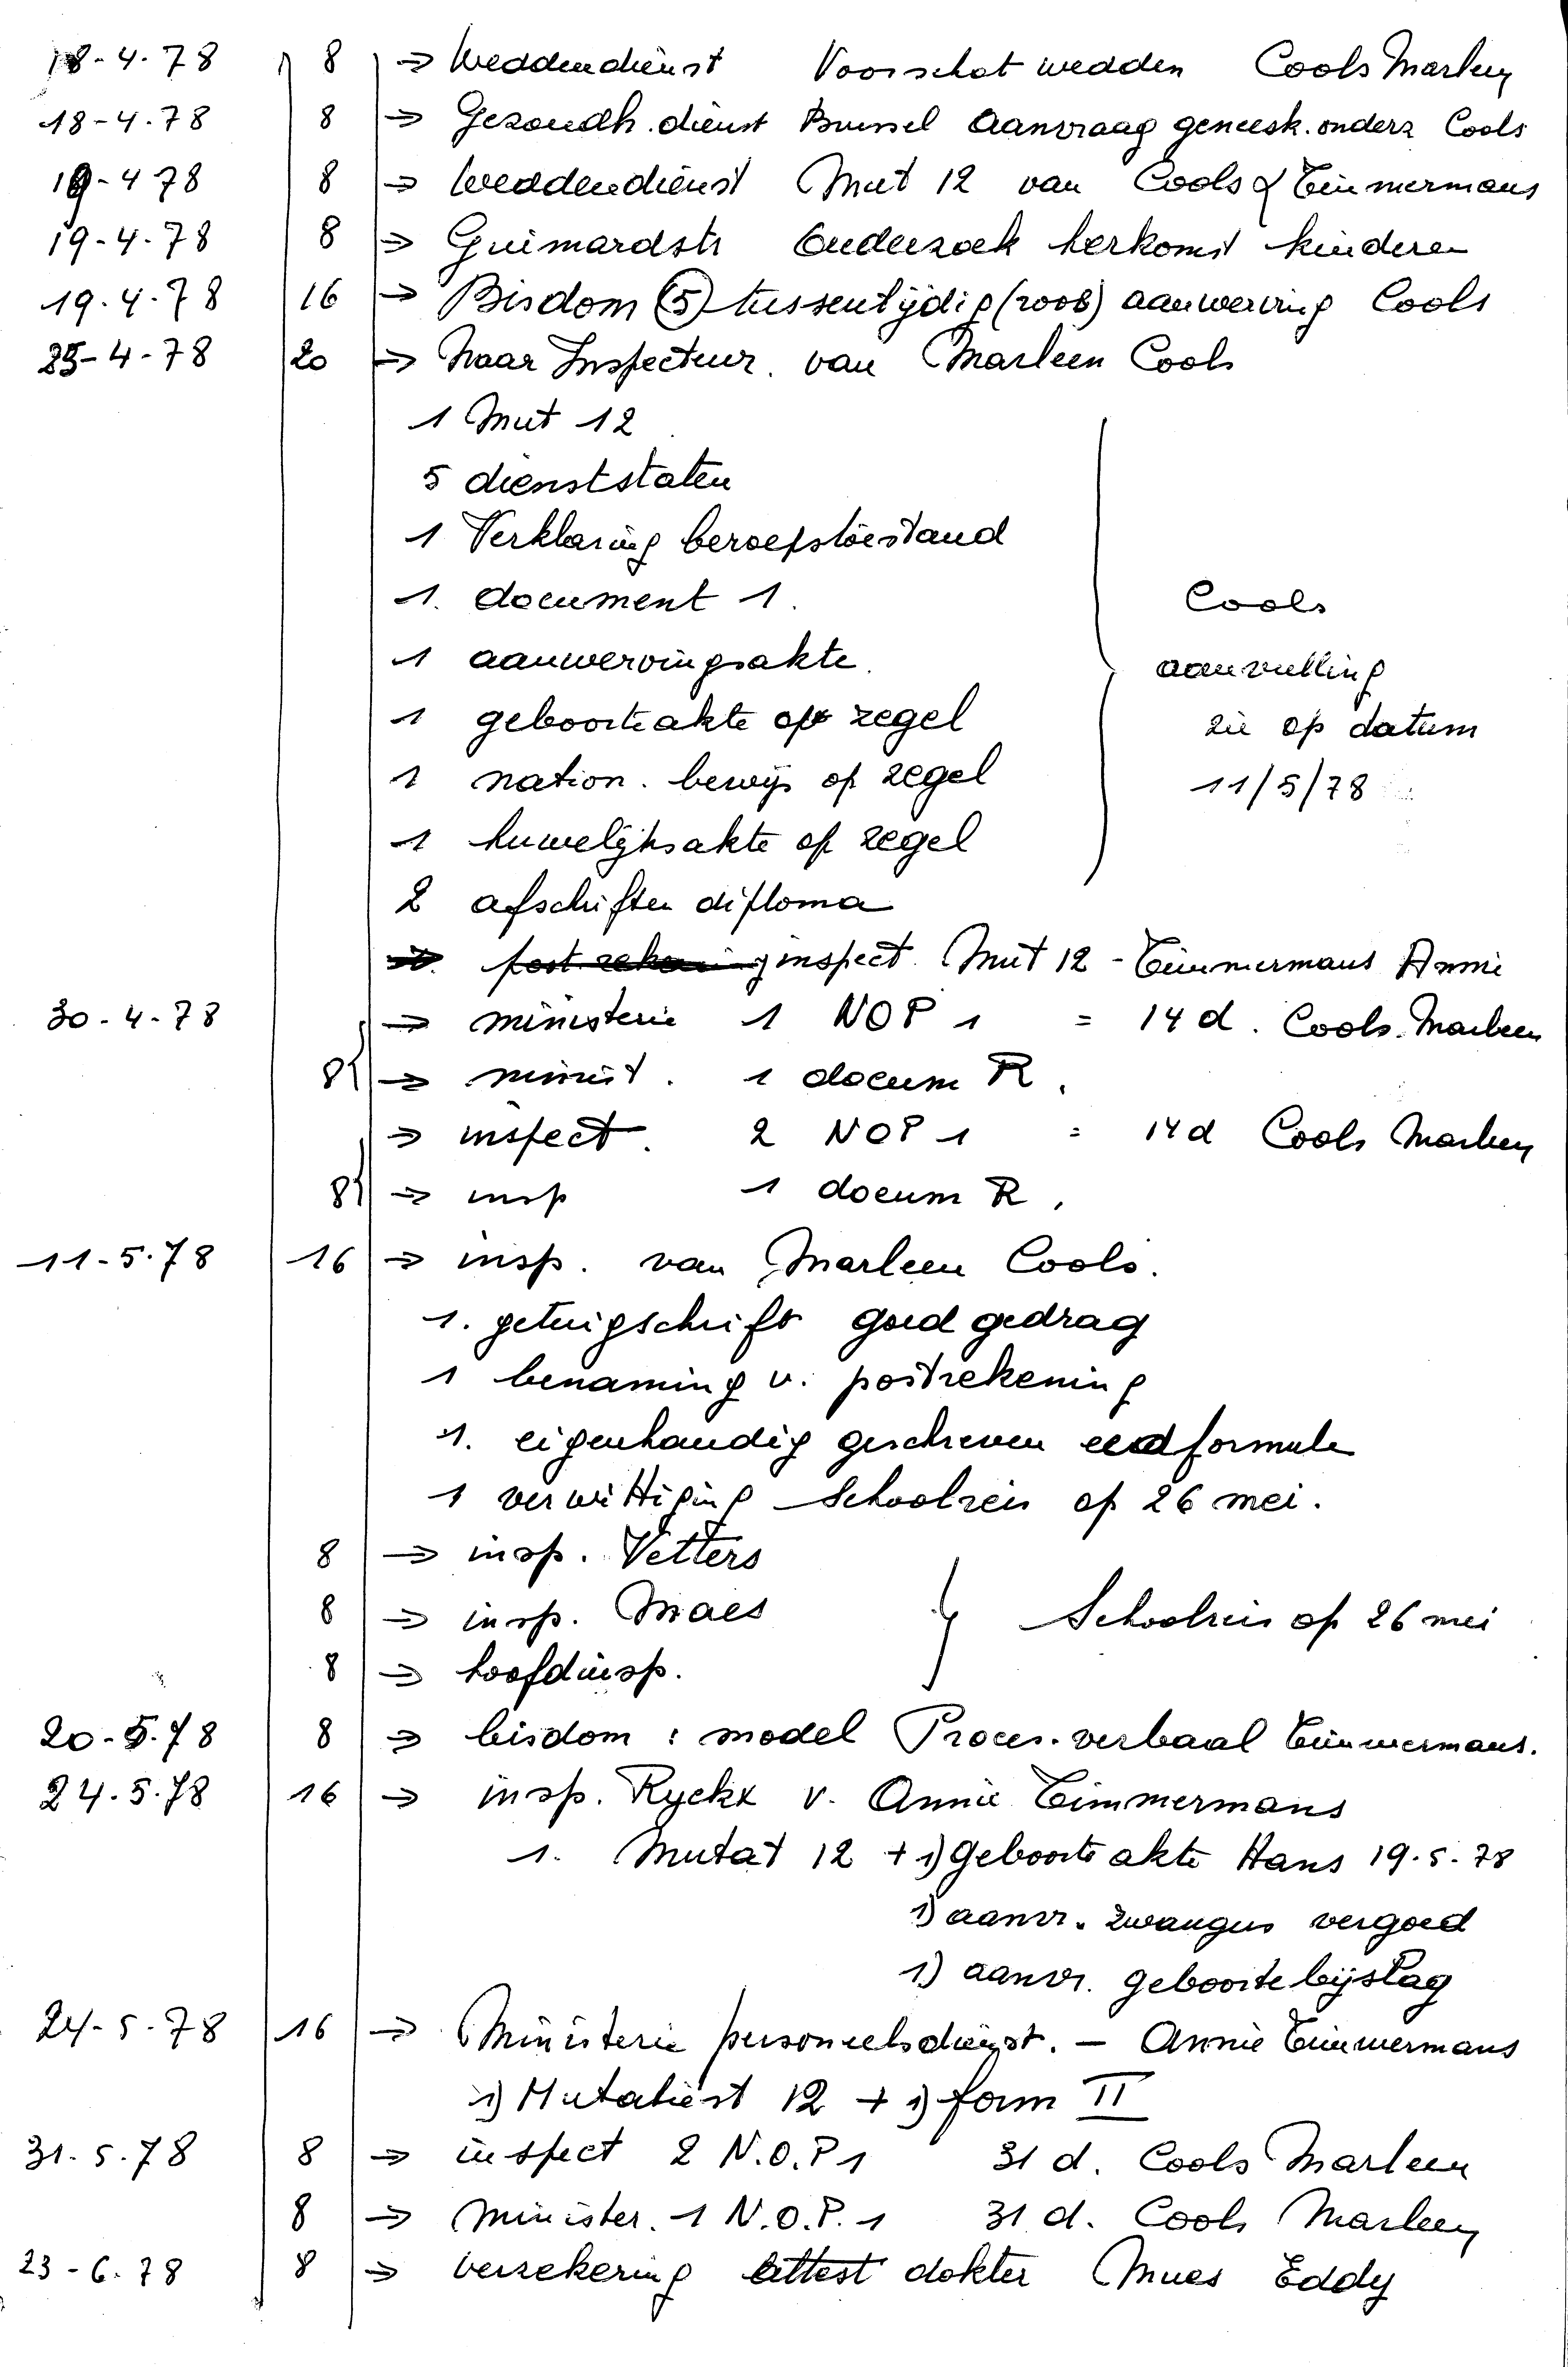 18-4.78 8 => Weddendienst Voorschot wedden Cools Marleen
18-4.78 8 => Gezondh. dienst Brussel Aanvraag geneesk. onderz Cools
19-4 78 8 => Weddendienst Mut 12 van Cools & Timmermans
19-4.78 8 => Guimardstr Onderzoek herkomst kinderen
19.4.78 16 => Bisdom (5) tussentijdig (roos) aanwerving Cools
25-4-78 20 => Naar Inspecteur. van Marleen Cools
1 Mut 12
5 dienststaten
1 Verklaring beroepstoestand
1. document 1. Cools
1 aanwervingsakte. aanvulling
1 geboorteakte op zegel zie op datum
1 nation. bewijs op zegel 11/5/78
1 huwelijksakte op zegel
2 afschriften diploma
=> inspect. Mut 12 - Timmermans Annie
30-4-78 => ministerie 1 NOP 1 = 14 d. Cools. Marleen
8 => minist. 1 docum R.
=> inspect. 2 NOP 1 = 14 d Cools Marleen
8 => insp 1 docum R.
11-5.78 16 => insp. van Marleen Cools.
1. getuigschrift goed gedrag
1 benaming v. postrekening
1. eigenhandig geschreven eedformule
1 verwittiging Schoolreis op 26 mei.
8 => insp. Vetters
8 => insp. Maes } Schoolreis op 26 mei
8 => hoofdinsp.
20-5.78 8 => bisdom : model Proces-verbaal Timmermans.
24.5.78 16 => insp. Ryckx v. Annie Timmermans
1. Mutat 12 + 1) Geboorteakte Hans 19.5.78
1) aanvr. zwangers vergoed
1) aanvr. geboortebijslag
24-5-78 16 => Ministerie personeelsdienst. - Annie Timmermans
1) Mutatiest 12 + 1) form II
31.5.78 8 => inspect 2 N.O.P 1 31 d. Cools Marleen
8 => minister. 1 N.O.P. 1 31 d. Cools Marleen
23-6.78 8 => verzekering attest dokter Mues Eddy